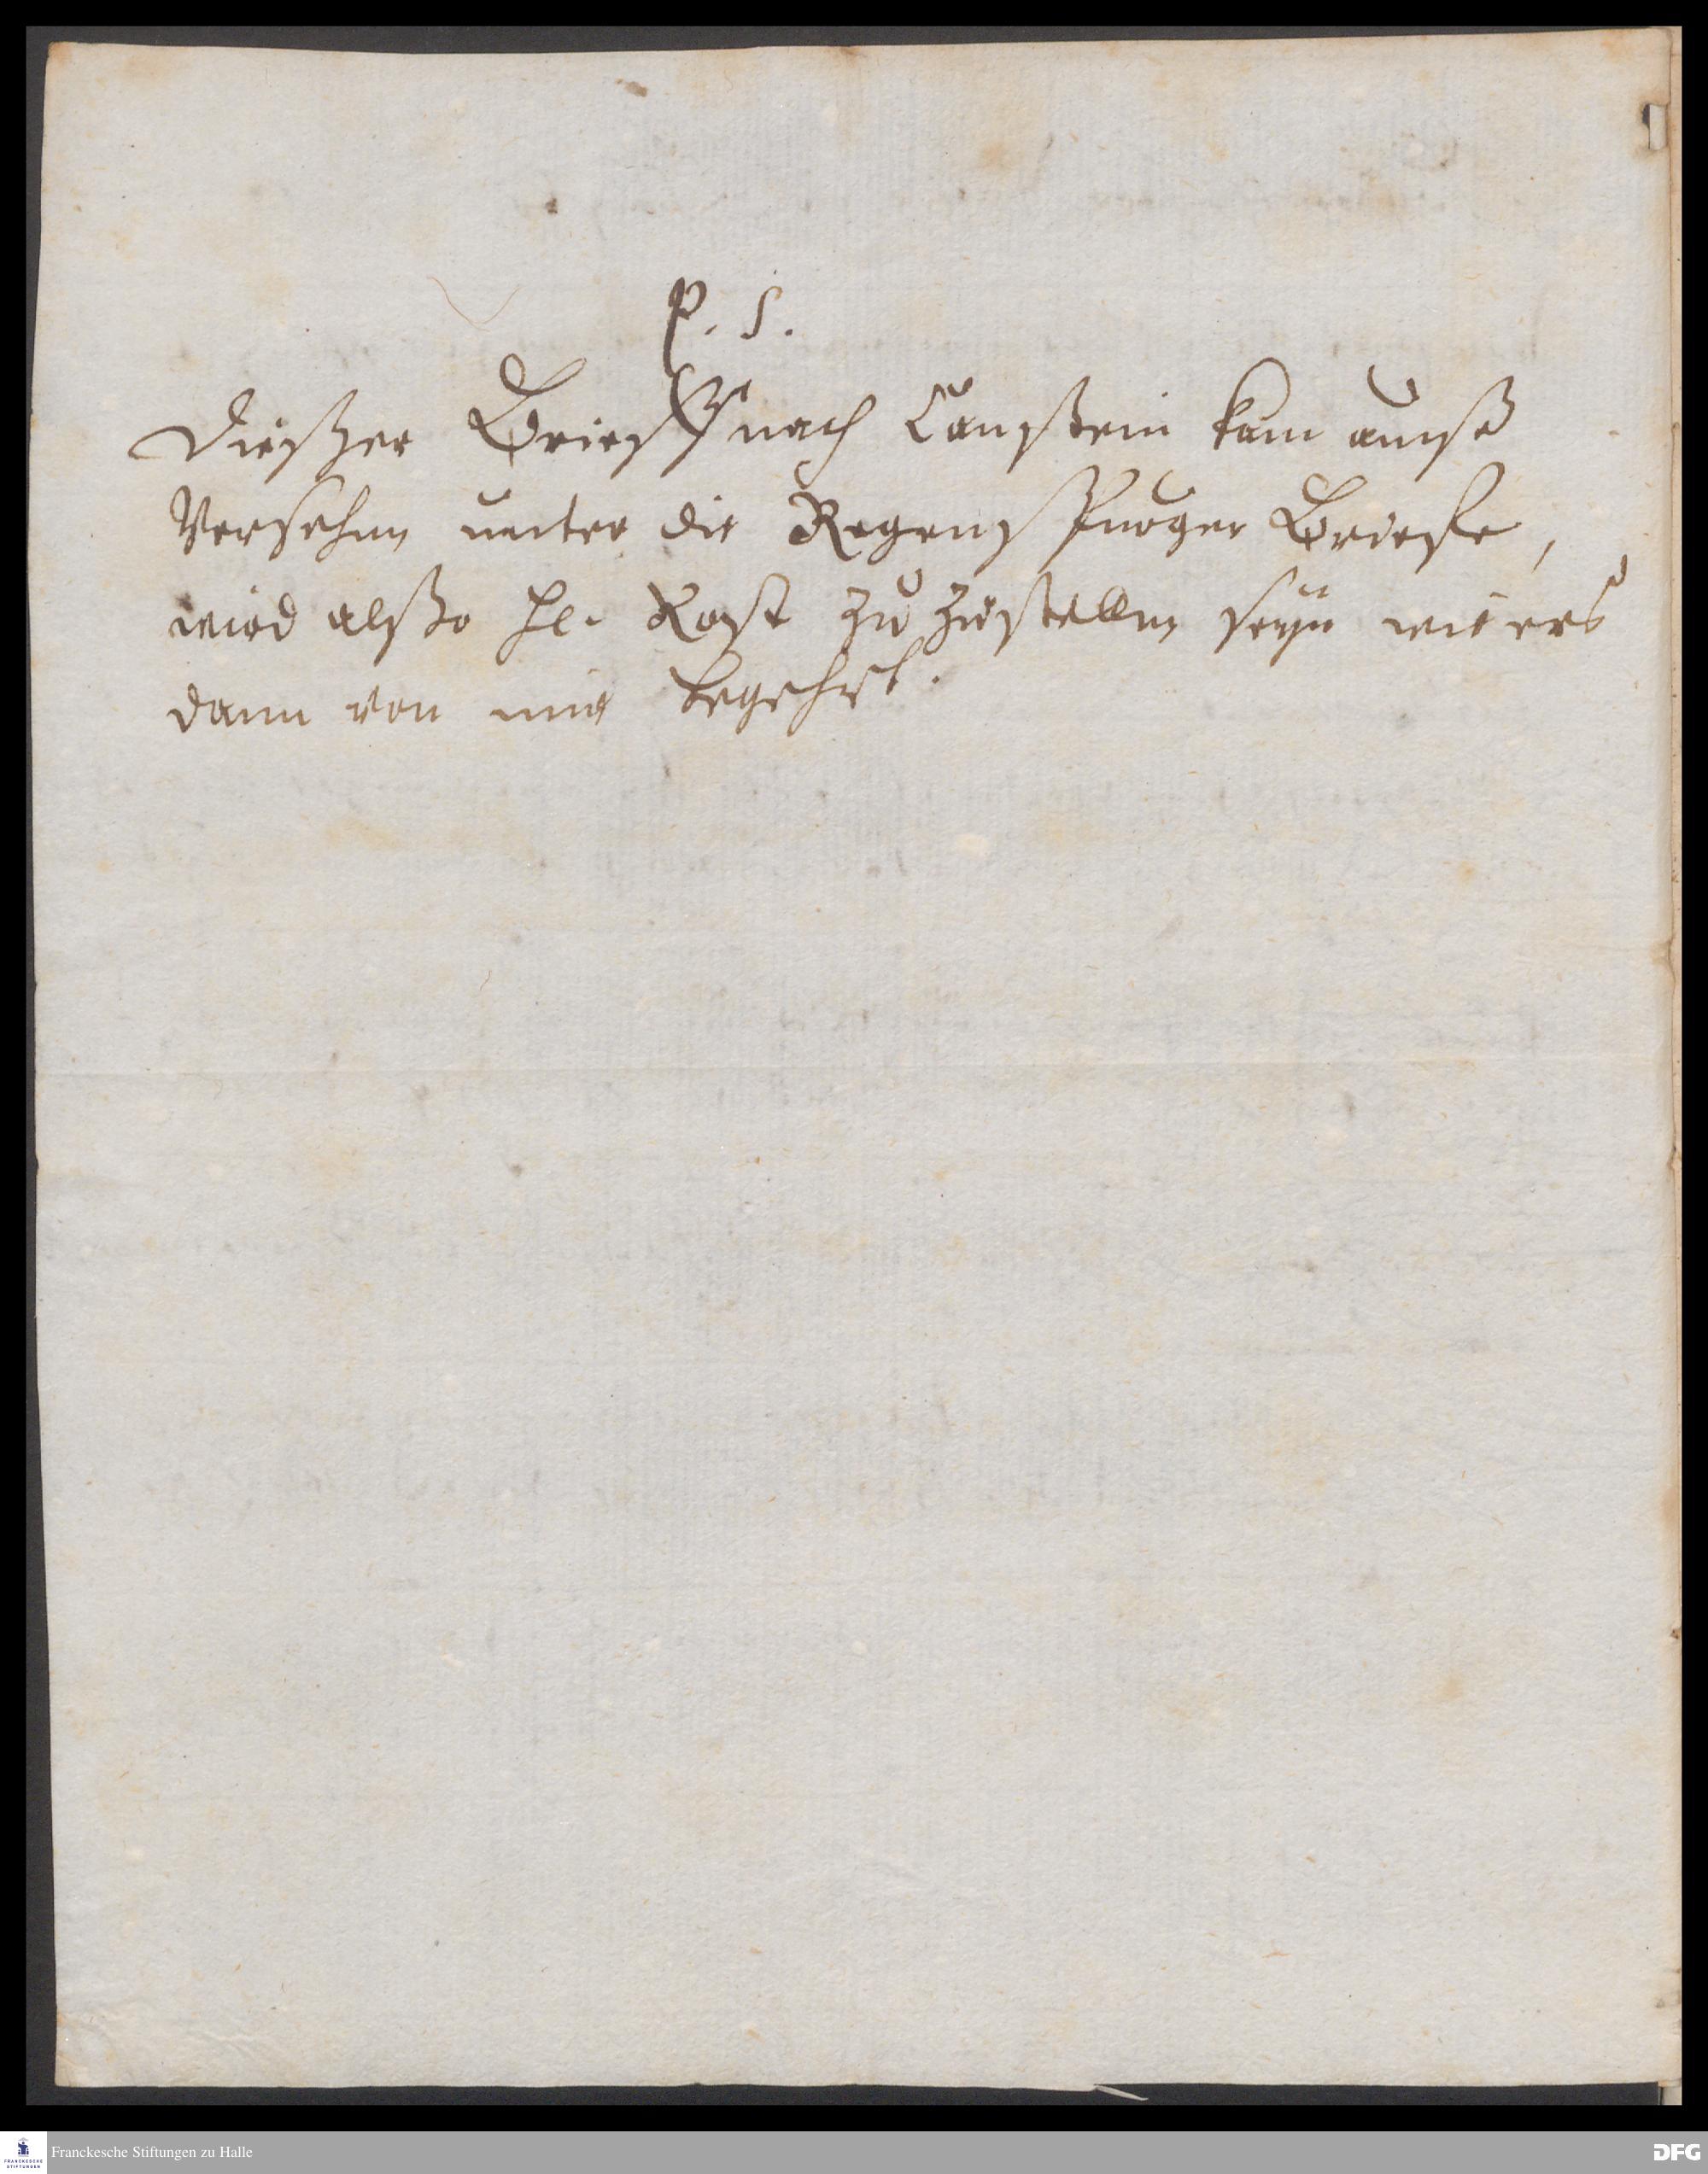 P. S.
Dießer Brieff nach Canstein kam auß
Versehen unter die Regenspurger Brieffe,
wird alßo H. Rost zu zustellen seyn wie ers
dann von mir begehrt.
Franckesche Stiftungen zu Halle
FRANCKESCHE
STIFTUNGEN
DFG